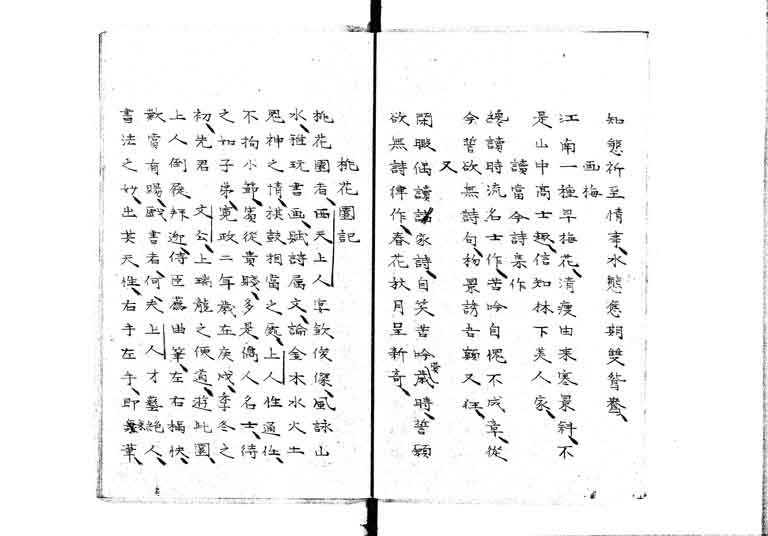 知愁祈至情事水態悠期雙鴛鴦
画梅
江南一種早梅花清瘦由来寒景斜不
是山中高士趣信知林下美人家
讀當今詩家作
纔讀時流名士作苦吟自愧不成章従
今誓欲無詩句物景誘吾顛又狂
又
閑暇偶讀諸家詩自笑苦吟歳時誓願
欲無詩律作春花秋月呈新奇
桃花園記
桃花園者西天上人宴飲俊傑風詠山
水雅玩書画賦詩属文論金木水火土
鬼神之情旗鼓相當之處上人性通任
不拘小節客從貴賤多是儒人名士待
之如子弟寛政二年歳在庚戌季冬之
初先君文公上瑞龍之便道遊此園
上人倒屐拜迎侍臣薦曲筆左右稱快
歎賞有賜歐書者何夫上人才藝絶人
書法之妙出其天性右手左手即無筆